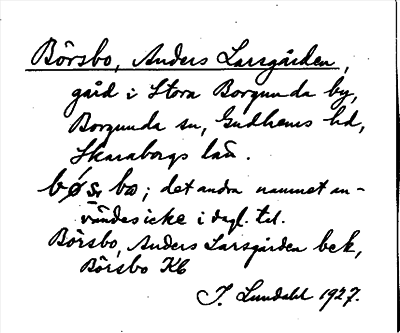 Börsbo, Anders Larsgården,
gård i Stora Borgunda by,
Borgunda sn, Gudhems hd,
Skaraborgs län.
bo; det andra namnet an-
vändes icke i dagl. tal.
Börsbo, Anders Larsgården bek,
Börsbo Kb
J. Lundahl 1927.